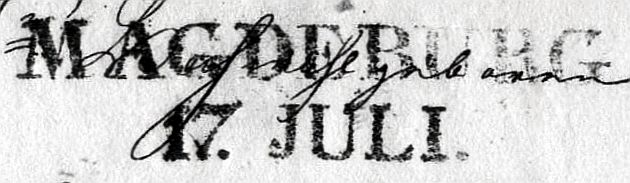 MAGDEBURG
17. JULI.